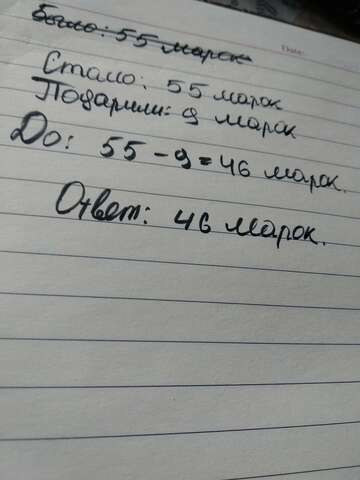 Было: 55 марок
Стало: 55 марок
Подарили: 9 марок
До: 55 - 9 = 46 марок.
Ответ: 46 марок.
Date: